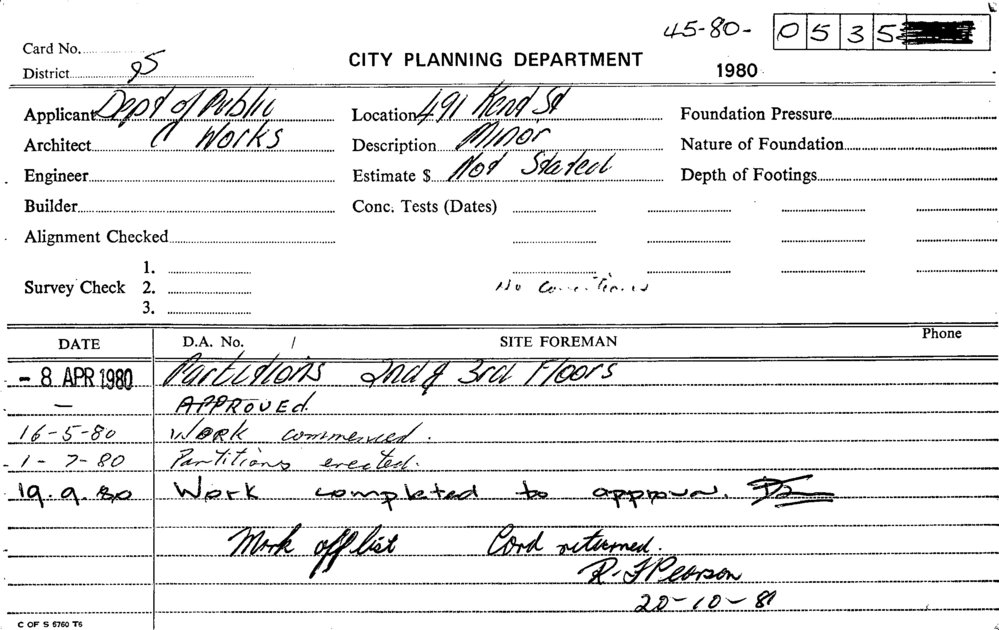 45-80- 0535
Card No.
District 9S
CITY PLANNING DEPARTMENT
1980
Applicant Dept of Public
Architect Works
Engineer
Builder
Alignment Checked
Survey Check 1.
2.
3.
Location 491 Kent St
Description Minor
Estimate $ Not Started
Conc. Tests (Dates)
No Conditions
Foundation Pressure
Nature of Foundation
Depth of Footings
DATE D.A. No. / SITE FOREMAN Phone
- 8 APR 1980 Partitions 2nd & 3rd Floors
— APPROVEd.
16-5-80 WORK commenced.
1-7-80 Partitions erected.
19.9.80 Work completed to approval.
Mark off list Card returned.
R. F Pearson
20-10-81
C OF S 6760 T6